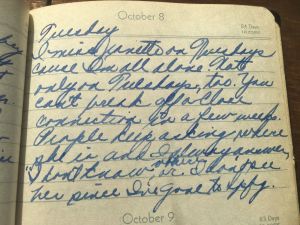 October 8
Tuesday
84 Days
I miss Janette on Tuesdays
cause I'm all alone. Not
only on Tuesdays, too. You
can't break off a close
connection in a few weeks.
People keep asking where
she is and I always answer,
I don't know, or I don't see
her since I've gone to
October 9
83 Days